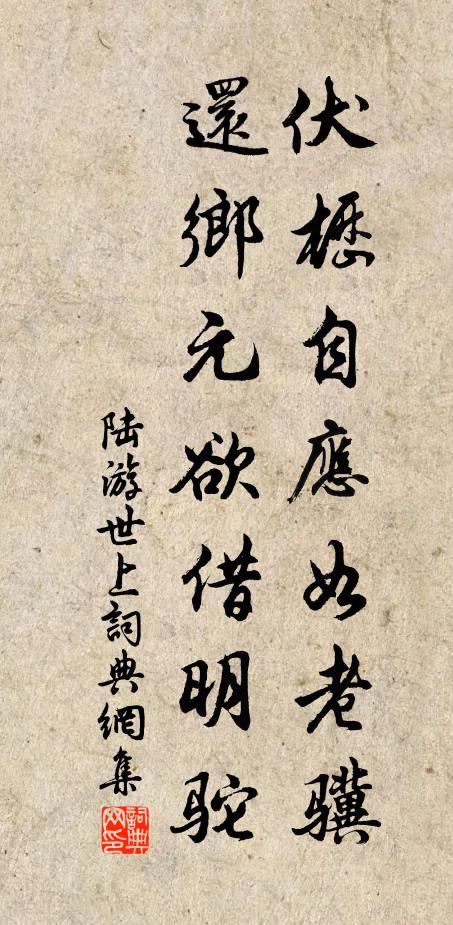 伏櫪自應如老驥
還鄉元欲借明駝
陸游世上詞典網集
詞典網印